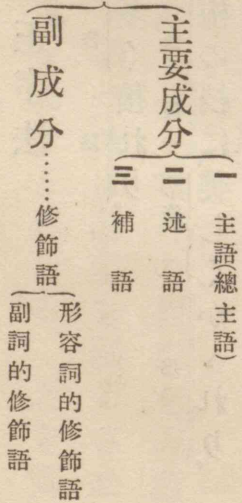 主要成分
一 主語(總主語)
二 述語
三 補語
副成分……修飾語
形容詞的修飾語
副詞的修飾語